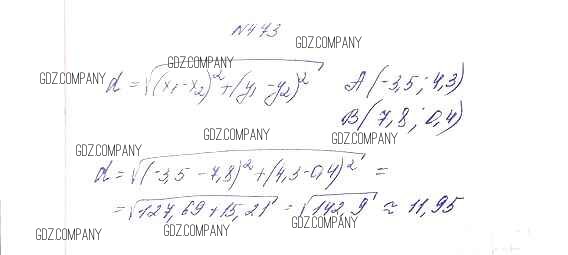 N473
GDZ.COMPANY
GDZ.COMPANY
GDZ.COMPANY d = √(x₁-x₂)² + (y₁-y₂)² A(-3,5; 4,3)
B(7,8; 0,4)
GDZ.COMPANY GDZ.COMPANY
GDZ.COMPANY
d = √(-3,5-7,8)² + (4,3-0,4)² =
= √127,69+15,21 = √142,9 ≈ 11,95
GDZ.COMPANY GDZ.COMPANY GDZ.COMPANY